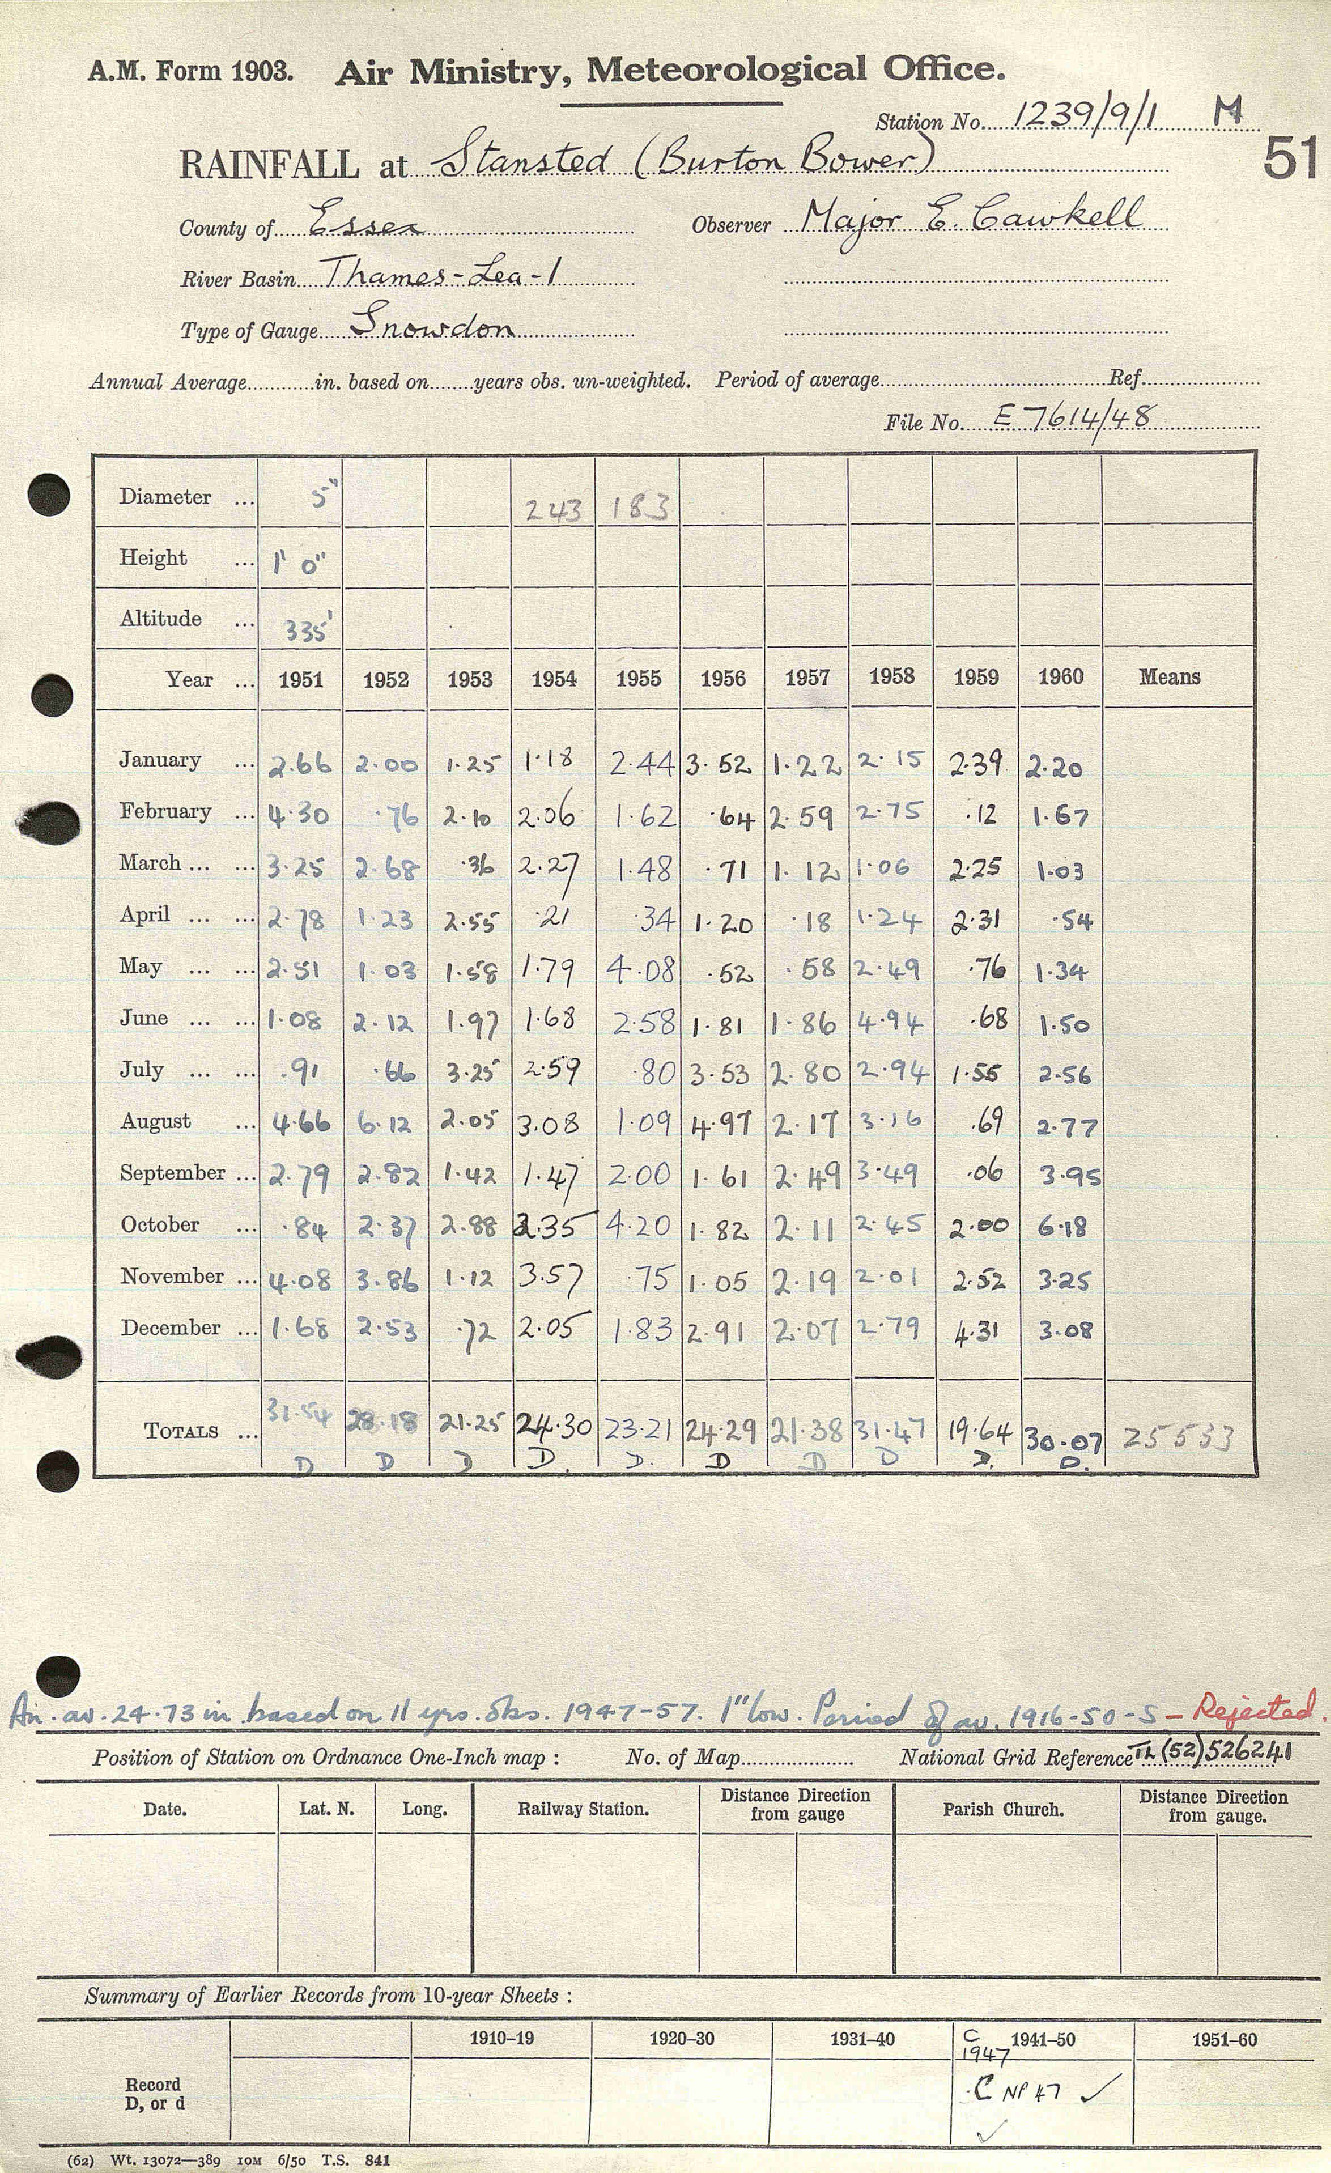 A.M. Form 1903. Air Ministry, Meteorological Office.
Station No. 1239/9/1 M
51
RAINFALL at Stansted (Burton Bower)
County of Essex Observer Major E. Cawkell
River Basin Thames-Lea-1
Type of Gauge Snowdon
Annual Average in. based on years obs. un-weighted. Period of average Ref.
File No. E 7614/48
Diameter ... 5" 243 183
Height ... 1' 0"
Altitude ... 335'
Year ... 1951 1952 1953 1954 1955 1956 1957 1958 1959 1960 Means
January ... 2.66 2.00 1.25 1.18 2.44 3.52 1.22 2.15 2.39 2.20
February ... 4.30 .76 2.10 2.06 1.62 .64 2.59 2.75 .12 1.67
March ... ... 3.25 2.68 .36 2.27 1.48 .71 1.12 1.06 2.25 1.03
April ... ... 2.78 1.23 2.55 .21 .34 1.20 .18 1.24 2.31 .54
May ... ... 2.51 1.03 1.58 1.79 4.08 .52 .58 2.49 .76 1.34
June ... ... 1.08 2.12 1.97 1.68 2.58 1.81 1.86 4.94 .68 1.50
July ... ... .91 .66 3.25 2.59 .80 3.53 2.80 2.94 1.55 2.56
August ... 4.66 6.12 2.05 3.08 1.09 4.97 2.17 3.16 .69 2.77
September ... 2.79 2.82 1.42 1.47 2.00 1.61 2.49 3.49 .06 3.95
October ... .84 2.37 2.88 2.35 4.20 1.82 2.11 2.45 2.00 6.18
November ... 4.08 3.86 1.12 3.57 .75 1.05 2.19 2.01 2.52 3.25
December ... 1.68 2.53 .72 2.05 1.83 2.91 2.07 2.79 4.31 3.08
TOTALS ... 31.54 28.18 21.25 24.30 23.21 24.29 21.38 31.47 19.64 30.07 25533
D D D D. D. D D D D. D.
An. av. 24.73 in based on 11 yrs. obs. 1947-57. 1" low. Period of av. 1916-50-S - Rejected.
Position of Station on Ordnance One-Inch map : No. of Map National Grid Reference TL (52) 526241
Date. Lat. N. Long. Railway Station. Distance from Direction gauge Parish Church. Distance from Direction gauge.
Summary of Earlier Records from 10-year Sheets :
1910–19 1920–30 1931–40 C 1947 1941–50 1951–60
Record
D, or d
C NP 47 ✓
✓
(62) Wt. 13072—389 10M 6/50 T.S. 841